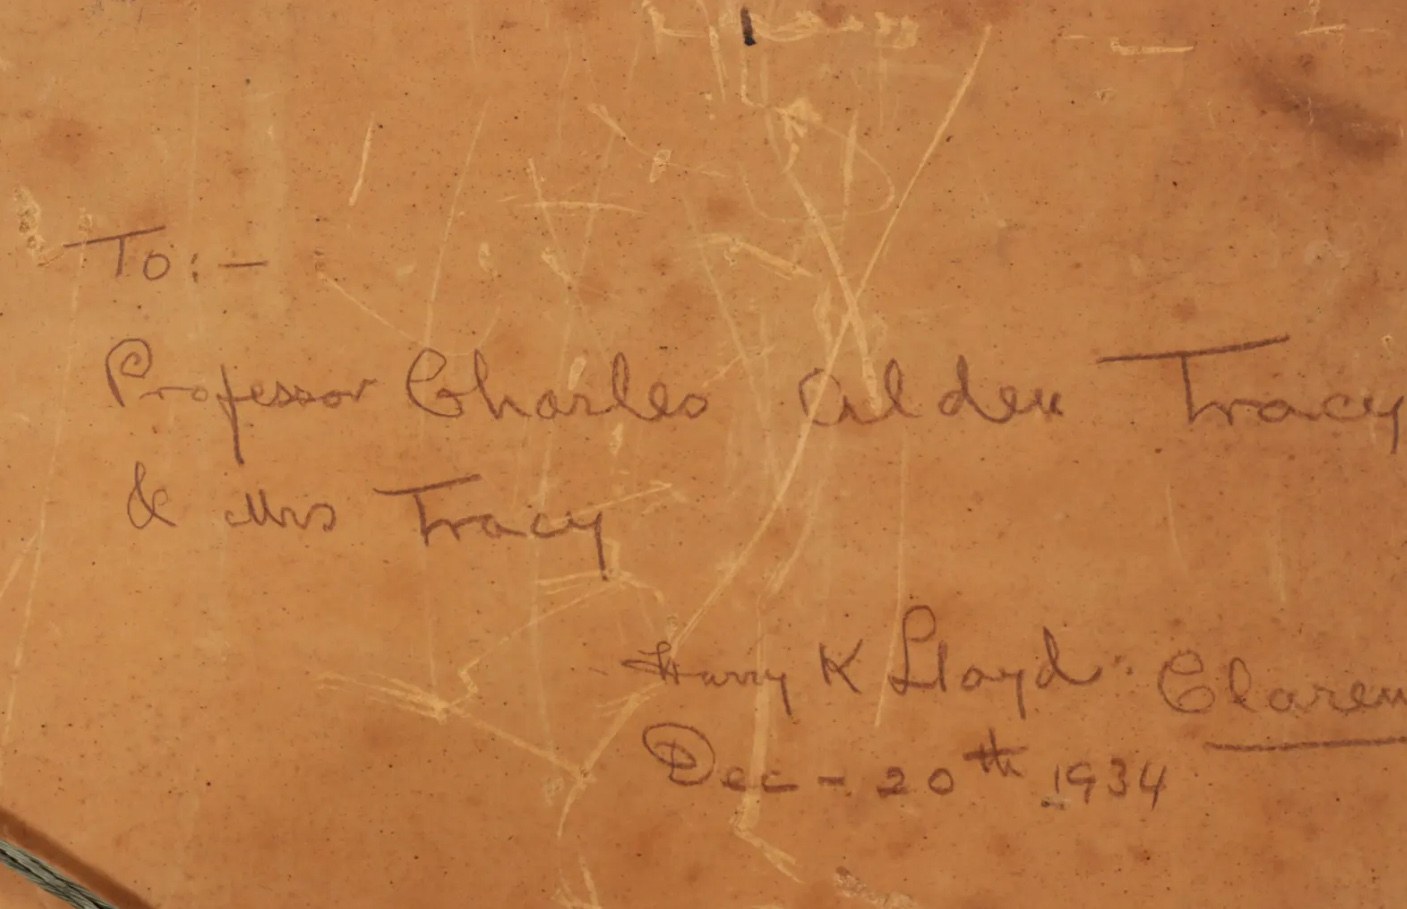 To:-
Professor Charles Alden Tracy
& Mrs Tracy
Harry K Lloyd.
Dec - 20th 1934